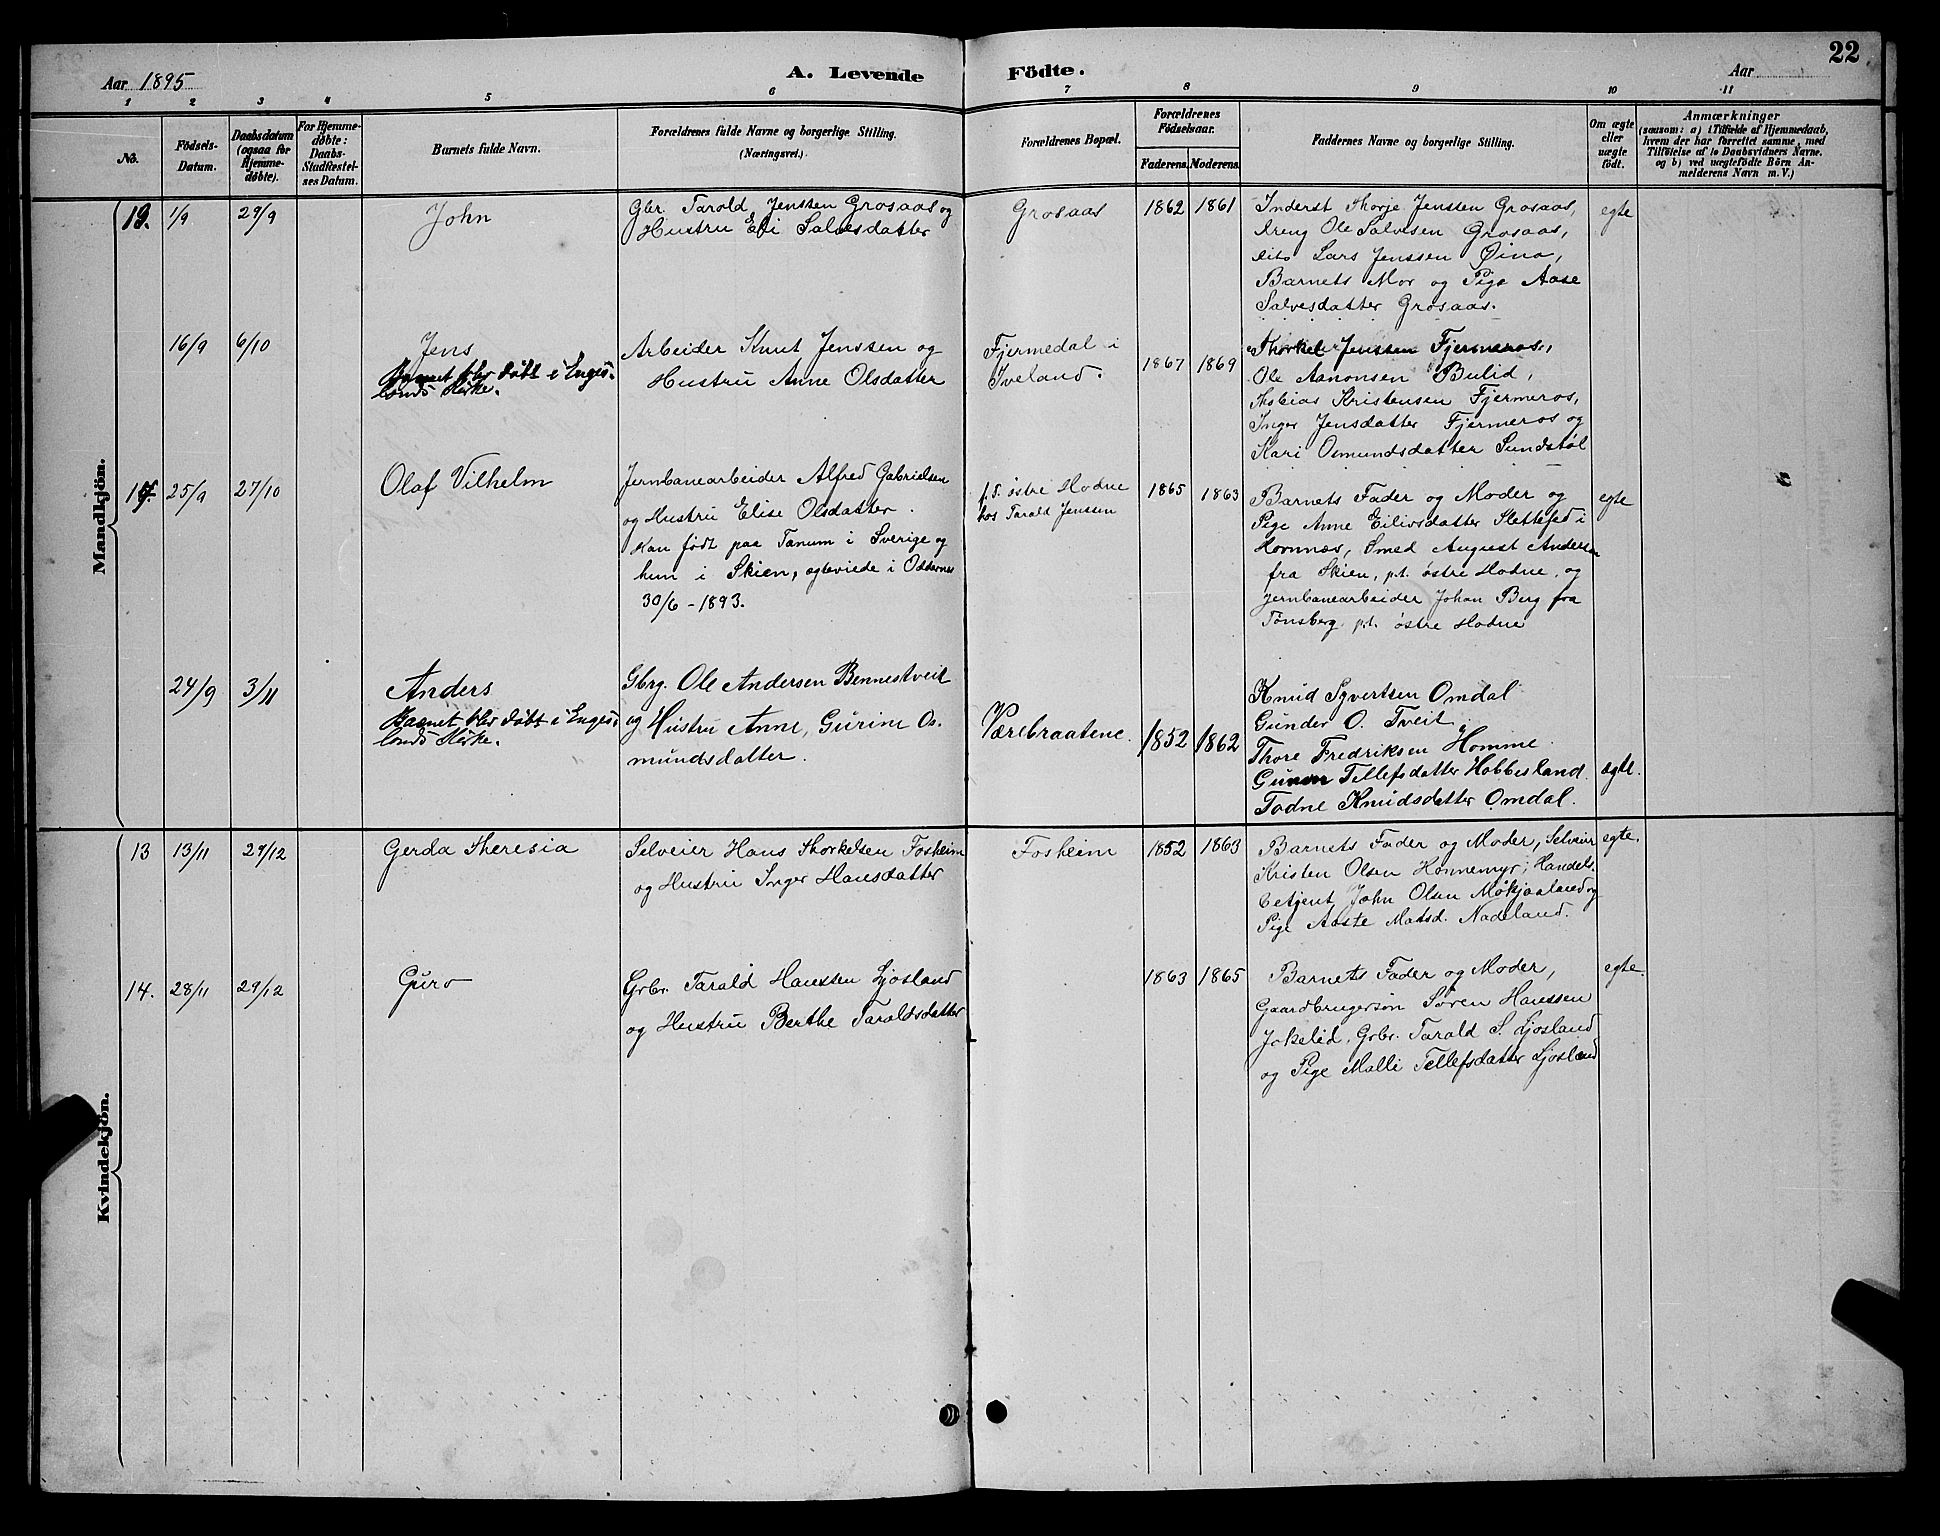 22
Aar 1895
A. Levende Födte.
Aar
1 2 3 4 5 6 7 8 9 10 11
No.
Födsels-
Datum.
Daabsdatum
(ogsaa for
Hjemme-
døbte).
For Hjemme-
døbte:
Daabs-
Stadfæstel-
ses Datum.
Barnets fulde Navn.
Forældrenes fulde Navne og borgerlige Stilling.
(Næringsvei.)
Forældrenes Bopæl.
Forældrenes
Födselsaar.
Faderens. Moderens.
Faddernes Navne og borgerlige Stilling.
Om ægte
eller
uægte
födt.
Anmærkninger
(saasom: a) i Tilfælde af Hjemmedaab,
hvem der har forrettet samme, med
Tilföielse af to Daabsvidners Navne.
og b) ved uægtefödte Börn An-
melderens Navn m. V.)
Mandkjön.
13. 1/9 29/9
John
Gbr. Tarald Jenssen Grosaas og
Hustru Eli Salvesdatter
Grosaas
1862 1861
Inderst Thorje Jenssen Grosaas,
dreng Ole Salvesen Grosaas,
dito Lars Jenssen Øina,
Barnets Mor og Pige Aase
Salvesdatter Grosaas.
egte
16/9 6/10
Jens
Barnet blev døbt i Enges-
lands Kirke.
Arbeider Knut Jenssen og
Hustru Anne Olsdatter
Fjermedal i
Iveland.
1867 1869
Thorkel Jenssen Fjermeros,
Ole Aanonsen Bulid,
Thobias Kristensen Fjermeros,
Inger Jensdatter Fjermeros og
Kari Osmundsdatter Sundstøl
25/9 27/10
Olaf Vilhelm
Jernbanearbeider Alfred Gabrielsen
og Hustru Elise Olsdatter.
Han født paa Tanum i Sverige og
hun i Skien, egteviede i Oddernes
30/6 - 1893.
østre Hodne
hos Tarald Jenssen
1865 1863
Barnets Fader og Moder og
Pige Anne Eilivsdatter Slettefed i
Hornnæs, Smed August Andersen
fra Skien, p.t. østre Hodne, og
jernbanearbeider Johan Berg fra
Tønsberg p.t. østre Hodne
egte
24/9 3/11
Anders
Barnet blev døbt i Enges-
lands Kirke.
Gbrg. Ole Andersen Bennestveit
og Hustru Anne Gurine Os-
mundsdatter.
Værebraatene.
1852 1862
Knud Syvertsen Omdal
Gunder O. Tveit.
Thore Fredriksen Homme.
Tellefsdatter Hobbesland.
Todne Knudsdatter Omdal.
ægte.
Kvindekjön.
13 13/11 29/12
Gerda Theresia
Selveier Hans Thorkelsen Fosheim
og Hustru Inger Hansdatter
Fosheim
1852 1863
Barnets Fader og Moder, Selveier
Kristen Olsen Honnemyr, Handels-
betjent John Olsen Møkjaaland og
Pige Aaste Matsd. Nadeland.
egte.
14. 28/11 29/12
Guro
Grbr. Tarald Hanssen Ljosland
og Hustru Berthe Taraldsdatter
1863 1865
Barnets Fader og Moder,
Gaardbrugersøn Søren Hanssen
Jokelid, Grbr. Tarald S. Ljosland
og Pige Malli Tellefsdatter Ljosland
egte.